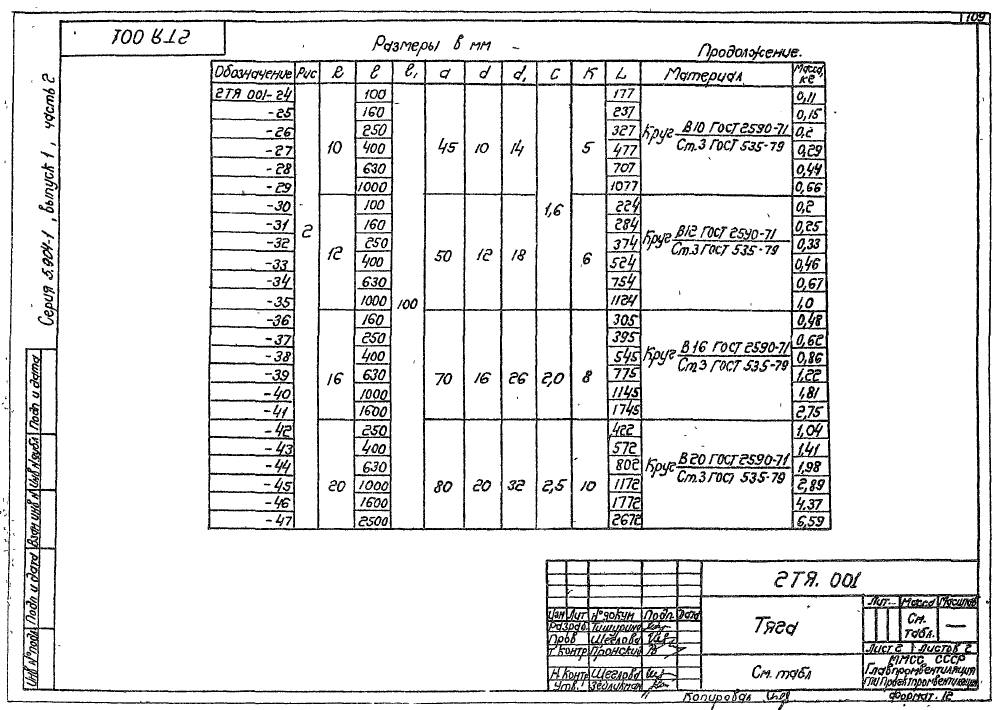 109
2ТЯ 001
Размеры в мм
Продолжение.
Серия 5.904-1, выпуск 1, часть 2
Обозначение Рис R l l₁ a d d₁ C K L Материал Масса, кг
2ТЯ 001-24 2 10 100 100 45 10 14 1,6 5 177 Круг В10 ГОСТ 2590-71 / Ст.3 ГОСТ 535-79 0,11
-25 160 237 0,15
-26 250 327 0,2
-27 400 477 0,29
-28 630 707 0,44
-29 1000 1077 0,66
-30 12 100 50 12 18 6 224 Круг В12 ГОСТ 2590-71 / Ст.3 ГОСТ 535-79 0,2
-31 160 284 0,25
-32 250 374 0,33
-33 400 524 0,46
-34 630 754 0,67
-35 1000 1124 1,0
-36 16 160 70 16 26 2,0 8 305 Круг В16 ГОСТ 2590-71 / Ст.3 ГОСТ 535-79 0,48
-37 250 395 0,62
-38 400 545 0,86
-39 630 775 1,22
-40 1000 1145 1,81
-41 1600 1745 2,75
-42 20 250 80 20 32 2,5 10 422 Круг В20 ГОСТ 2590-71 / Ст.3 ГОСТ 535-79 1,04
-43 400 572 1,41
-44 630 802 1,98
-45 1000 1172 2,89
-46 1600 1772 4,37
-47 2500 2672 6,59
Инв.№подл Подп и дата Взам инв.№ Инв №дубл Подп и дата
2ТЯ. 001
Изм Лит №докум Подп. Дата
Разраб. Тиширина
Пров Щеглова
Т.контр Пронский
Н.Контр Щеглова
Утв.
Тяга
См. табл
Лит Масса Масштаб
См. табл. —
Лист 2 Листов 2
ММСС СССР
Главпромвентиляция
ГПИ Проектпромвентиляция
Копировал
Формат. 12